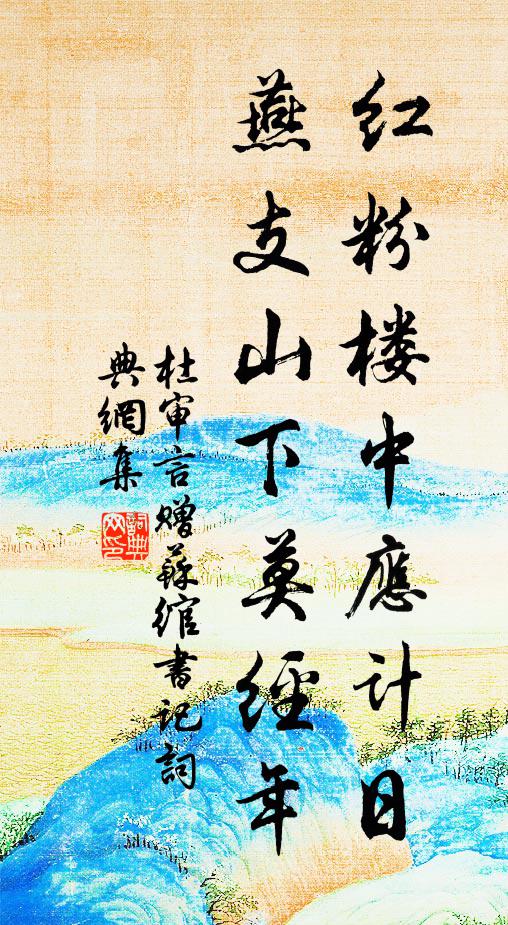 红粉楼中應计日
燕支山下莫經年
杜审言赠蘇绾書记詞
典網集
詞典
网印